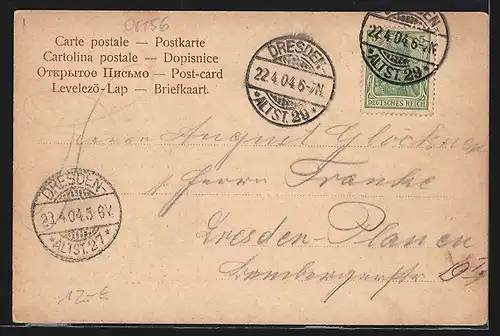 01156
Carte postale — Postkarte
Cartolina postale — Dopisnice
Открытое Письмо — Post-card
Levelező-Lap — Briefkaart.
DRESDEN-
22.4.04.6-7N.
*ALTST.29*
DRESDEN-
22.4.04.6-7N.
*ALTST.29*
DEUTSCHES REICH
Herrn August Glöckner
Herrn Franke
Dresden-Plauen
Bambergerstr
DRESDEN-
23.4.04.5-6V.
*ALTST.27*
12.-€